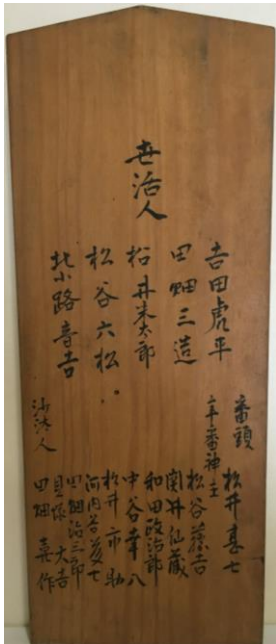 世活人
吉田虎平
田畑三造
松井末太郎
松谷六松
北小路音吉
番頭 松井喜七
二十番神主 松谷藤吉
関井仙蔵
和田政治郎
中谷幸八
松井市助
河内谷
田畑治三郎
貝塚大吉
田畑喜作